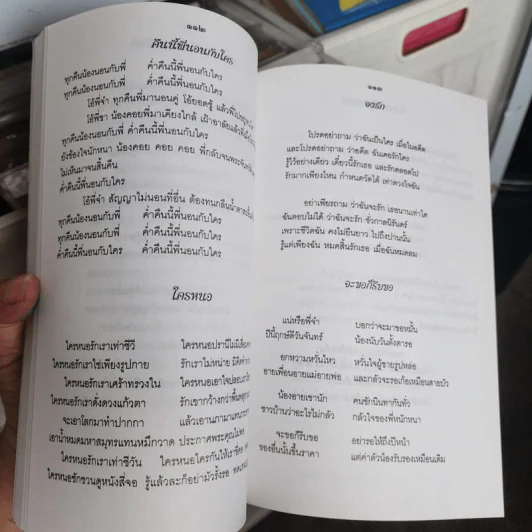 ๑๑๒
คืนนี้พี่นอนกับใคร
ทุกคืนน้องนอนกับพี่ ค่ำคืนนี้พี่นอนกับใคร
ทุกคืนน้องนอนกับพี่ ค่ำคืนนี้พี่นอนกับใคร
โอ้พี่จ๋า ทุกคืนพี่มานอนคู่ โอ้ยอดชู้ แล้วพี่ไป
โอ้พี่ขา น้องคอยพี่มาเคียงใกล้ เฝ้าอาลัยแล้ว
ทุกคืนน้องนอนกับพี่ ค่ำคืนนี้พี่นอนกับใคร
ยังร้องใจนักหนา น้องคอย คอย คอย พี่กลับจน
ไม่เห็นมาจนสิ้นคืน
ค่ำคืนนี้พี่นอนกับใคร
โอ้พี่จ๋า สัญญาไม่นอนที่อื่น ต้องทนกลืนน้ำตา
ทุกคืนน้องนอนกับพี่ ค่ำคืนนี้พี่นอนกับใคร
ทุกคืนน้องนอนกับพี่ ค่ำคืนนี้พี่นอนกับใคร
ค่ำคืนนี้พี่นอนกับใคร ค่ำคืนนี้พี่นอนกับใคร
ใครหนอ
ใครหนอรักเราเท่าชีวี ใครหนอปรานีไม่มี
ใครหนอรักเราใช่เพียงรูปกาย รักเราไม่หน่าย มิคิด
ใครหนอเห็นเราเศร้าทรวงใน ใครหนอเอาใจปลอบเรา
ใครหนอรักเราดั่งดวงแก้วตา รักเขากว้างกว่าพื้น
จะเอาโลกมาทำปากกา แล้วเอานภามาแทน
เอาน้ำหมดมหาสมุทรแทนหมึกวาด ประกาศพระคุณไม่พอ
ใครหนอรักเราเท่าชีวัน ใครหนอใครกันให้เรา
ใครหนอชักชวนดูหนังสี่จอ รู้แล้วละก็อย่ามัวรั้งรอ
๑๑๓
จงรัก
โปรดอย่าถาม ว่าฉันเป็นใคร เมื่อในอดีต
และโปรดอย่าถาม ว่าอดีต ฉันเคยรักใคร
รู้ไว้อย่างเดียว เดี๋ยวนี้รักเธอ และรักตลอดไป
รักมากเพียงไหน กำหนดวัดได้ เท่าดวงใจฉัน
อย่าเพียรถาม ว่าฉันจะรัก เธอนานเท่าใด
ฉันตอบไม่ได้ ว่าฉันจะรัก ชั่วกาลนิรันดร์
เพราะชีวิตฉัน คงไม่ยืนยาว ไปถึงปานนั้น
รู้แค่เพียงฉัน หมดสิ้นรักเธอ เมื่อฉันหมดลม
จะขอก็รีบขอ
แน่หรือพี่จ๋า บอกว่าจะมาขอหมั้น
ปีนี้ฤกษ์ดีวันจันทร์ น้องนับวันตั้งตารอ
อกหวามหวั่นไหว หวั่นใจผู้ชายรูปหล่อ
อายเพื่อนอายแม่อายพ่อ และกลัวจะรอเก้อเหมือนสายบัว
น้องอายเขานัก คนชักนินทากันทั่ว
ชาวบ้านว่าอะไรไม่กลัว กลัวใจของพี่หนักหนา
จะขอก็รีบขอ อย่ารอให้ถึงปีหน้า
ของอื่นนั้นขึ้นราคา แต่ค่าตัวน้องรับรองเหมือนเดิม